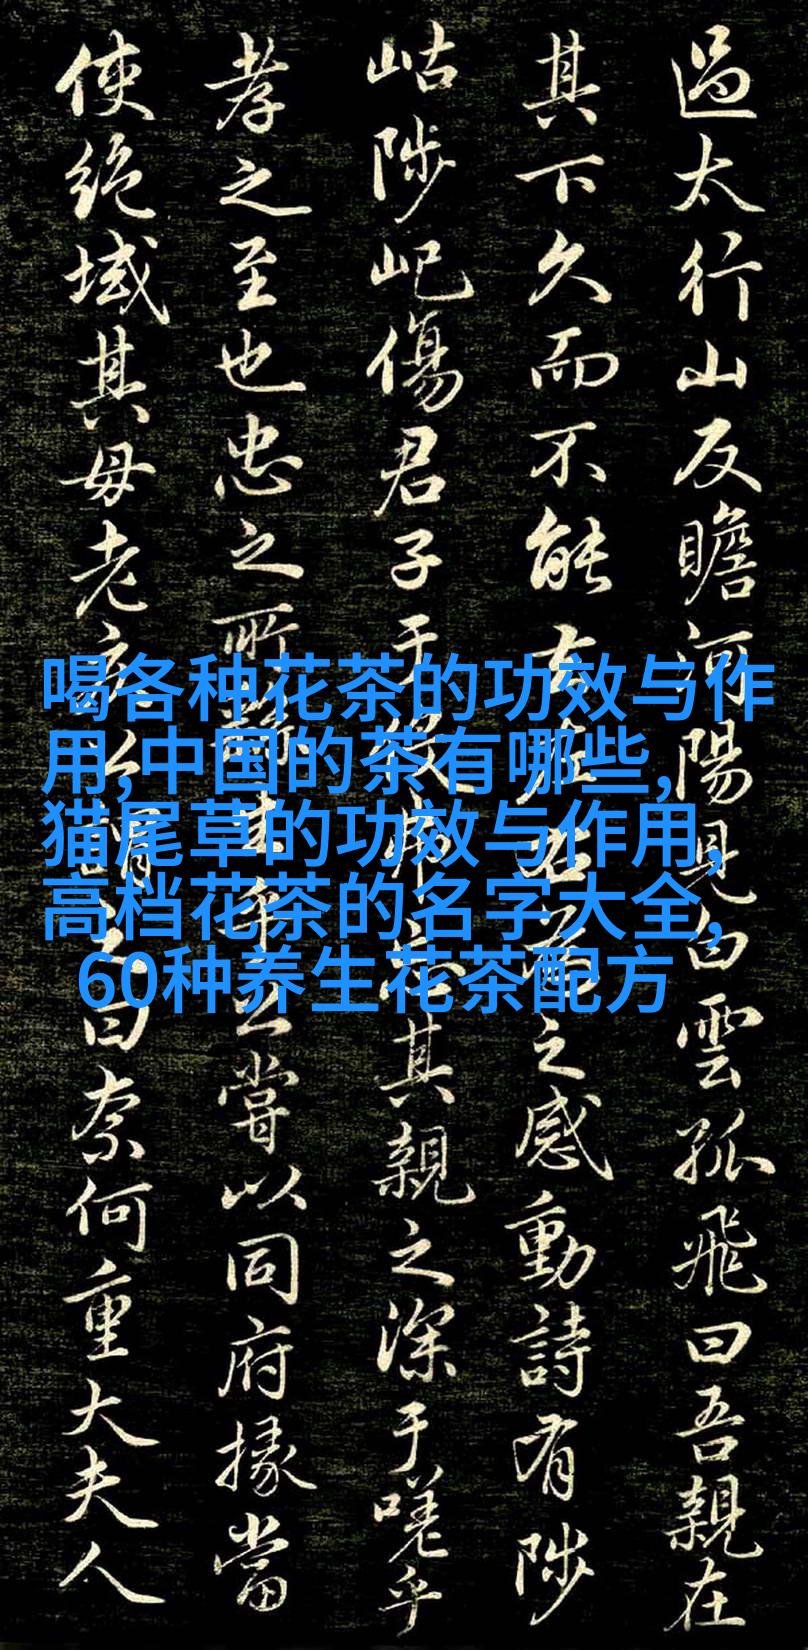 過太行山反瞻河陽見白雲孤飛曰吾親在
其下久而不能去左右為之感動詩有陟
岵陟屺傷君子于役弗忘其親之深于嗟乎
孝之至也忠之所生嘗以同府掾當
使絶域其母老疾公謂之曰奈何重大夫人
喝各种花茶的功效与作
用,中国的茶有哪些,
猫尾草的功效与作用,
高档花茶的名字大全,
60种养生花茶配方